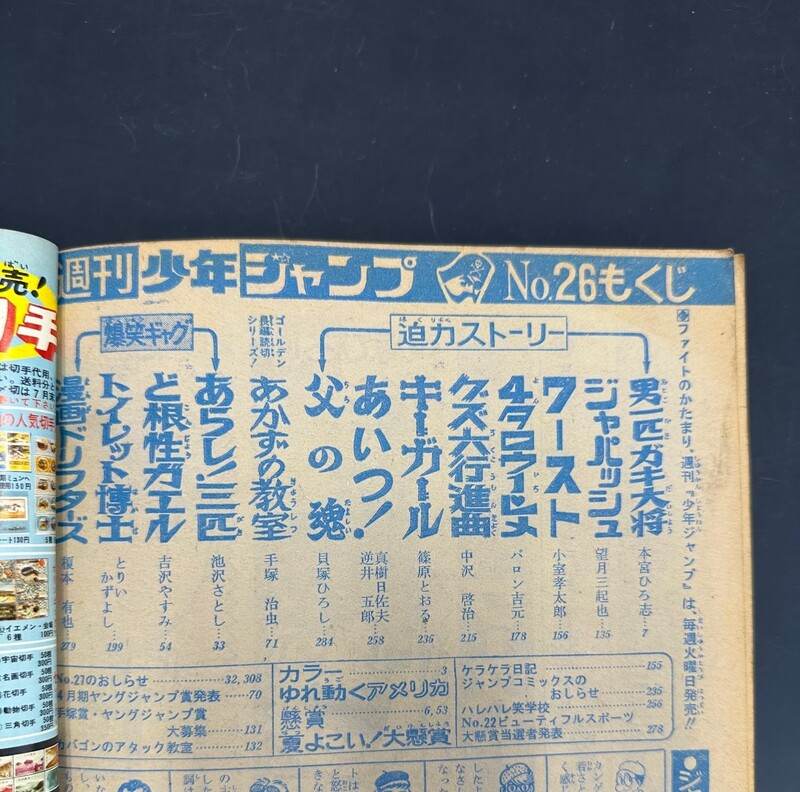 週刊少年ジャンプ No.26もくじ
◆ファイトのかたまり、週刊『少年ジャンプ』は、毎週火曜日発売!!
迫力ストーリー
男一匹ガキ大将 本宮ひろ志…7
ジャパッシュ 望月三起也…135
ワースト 小室孝太郎…156
バロン吉元…178
中沢 啓治…215
キーガール 篠原とおる…235
あいつ! 真樹日佐夫 逆井五郎…258
父の魂 貝塚ひろし…284
ゴールデン長編読切シリーズ!
あかずの教室 手塚 治虫…71
爆笑ギャグ
あらし!三匹 池沢さとし…33
ど根性ガエル 吉沢やすみ…54
トイレット博士 とりいかずよし…199
漫画ドリフターズ 榎本 有也…279
No.27のおしらせ 32, 308
4月期ヤングジャンプ賞発表 70
手塚賞・ヤングジャンプ賞
大募集 131
カバゴンのアタック教室 132
カラー 3
ゆれ動くアメリカ
懸賞 6,53
夏よこい!大懸賞
ケラケラ日記 155
ジャンプコミックスの
おしらせ 235
ハレハレ笑学校 256
No.22ビューティフルスポーツ
大懸賞当選者発表 278
売!
切手
は切手代用、
い。送料分と
〆切は7月末
の人気切手
6種 100円
宇宙切手 50種 300円
名画切手 50種 300円
花切手 50種 300円
動物切手 50種
三角切手 50種 350円